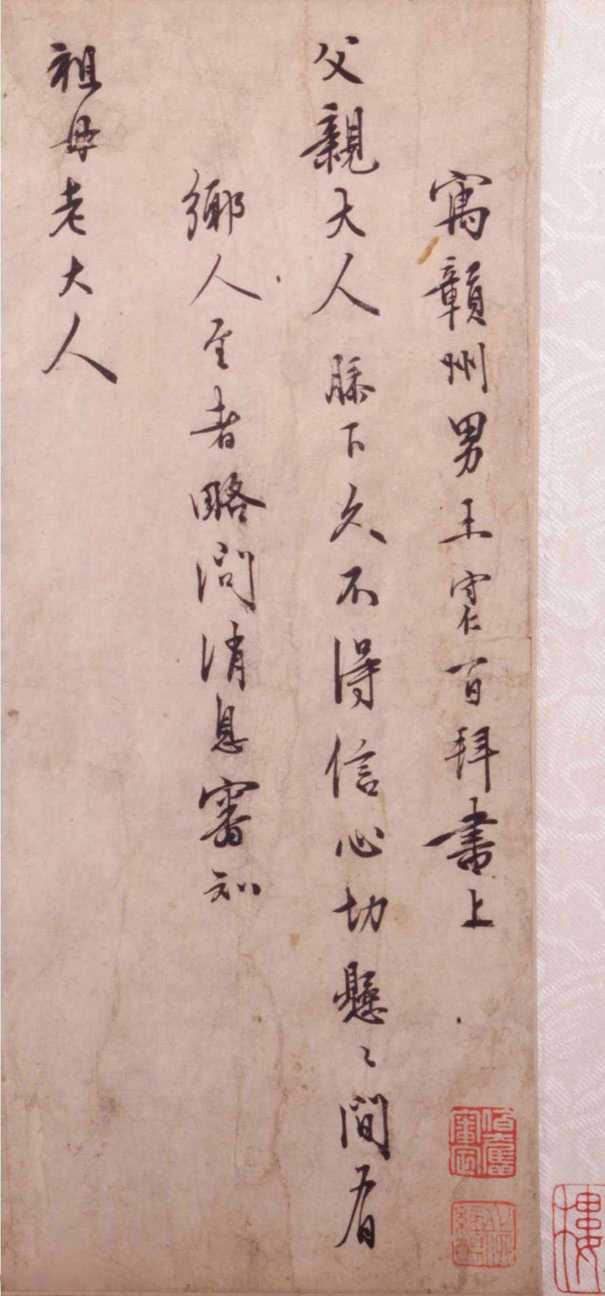 寓贛州男王守仁百拜書上
父親大人膝下久不得信心切懸〻間有
鄉人至者略問消息審知
祖母老大人